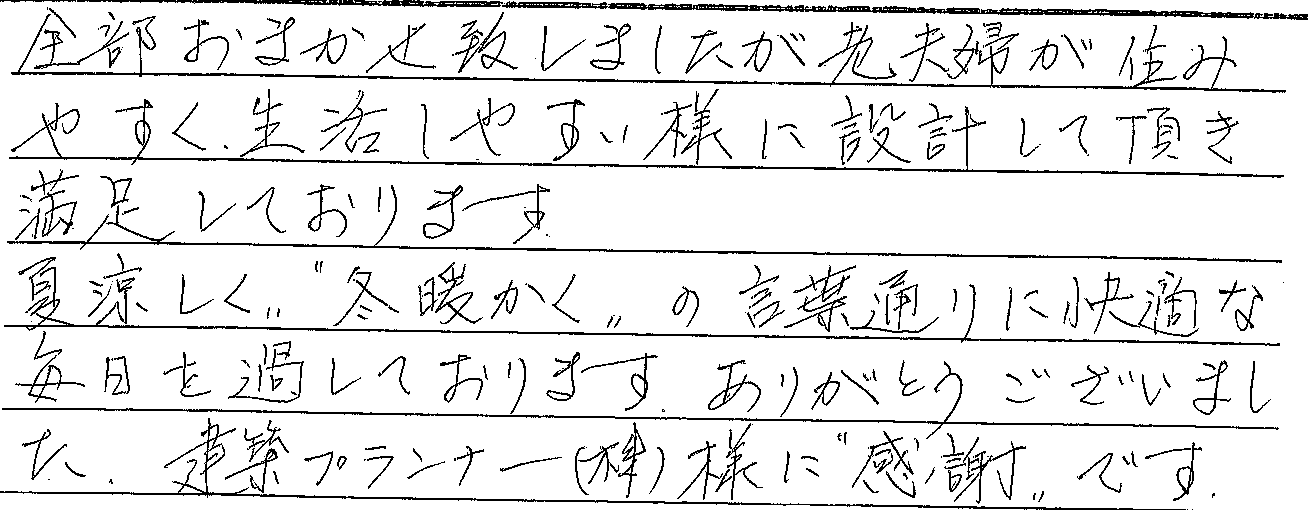 全部おまかせ致しましたが老夫婦が住み
やすく.生活しやすい様に設計して頂き
満足しております.
夏涼しく〟〝冬暖かく〟の言葉通りに快適な
毎日を過しております.ありがとうございまし
た.建築プランナー(株)様に〝感謝〟です.